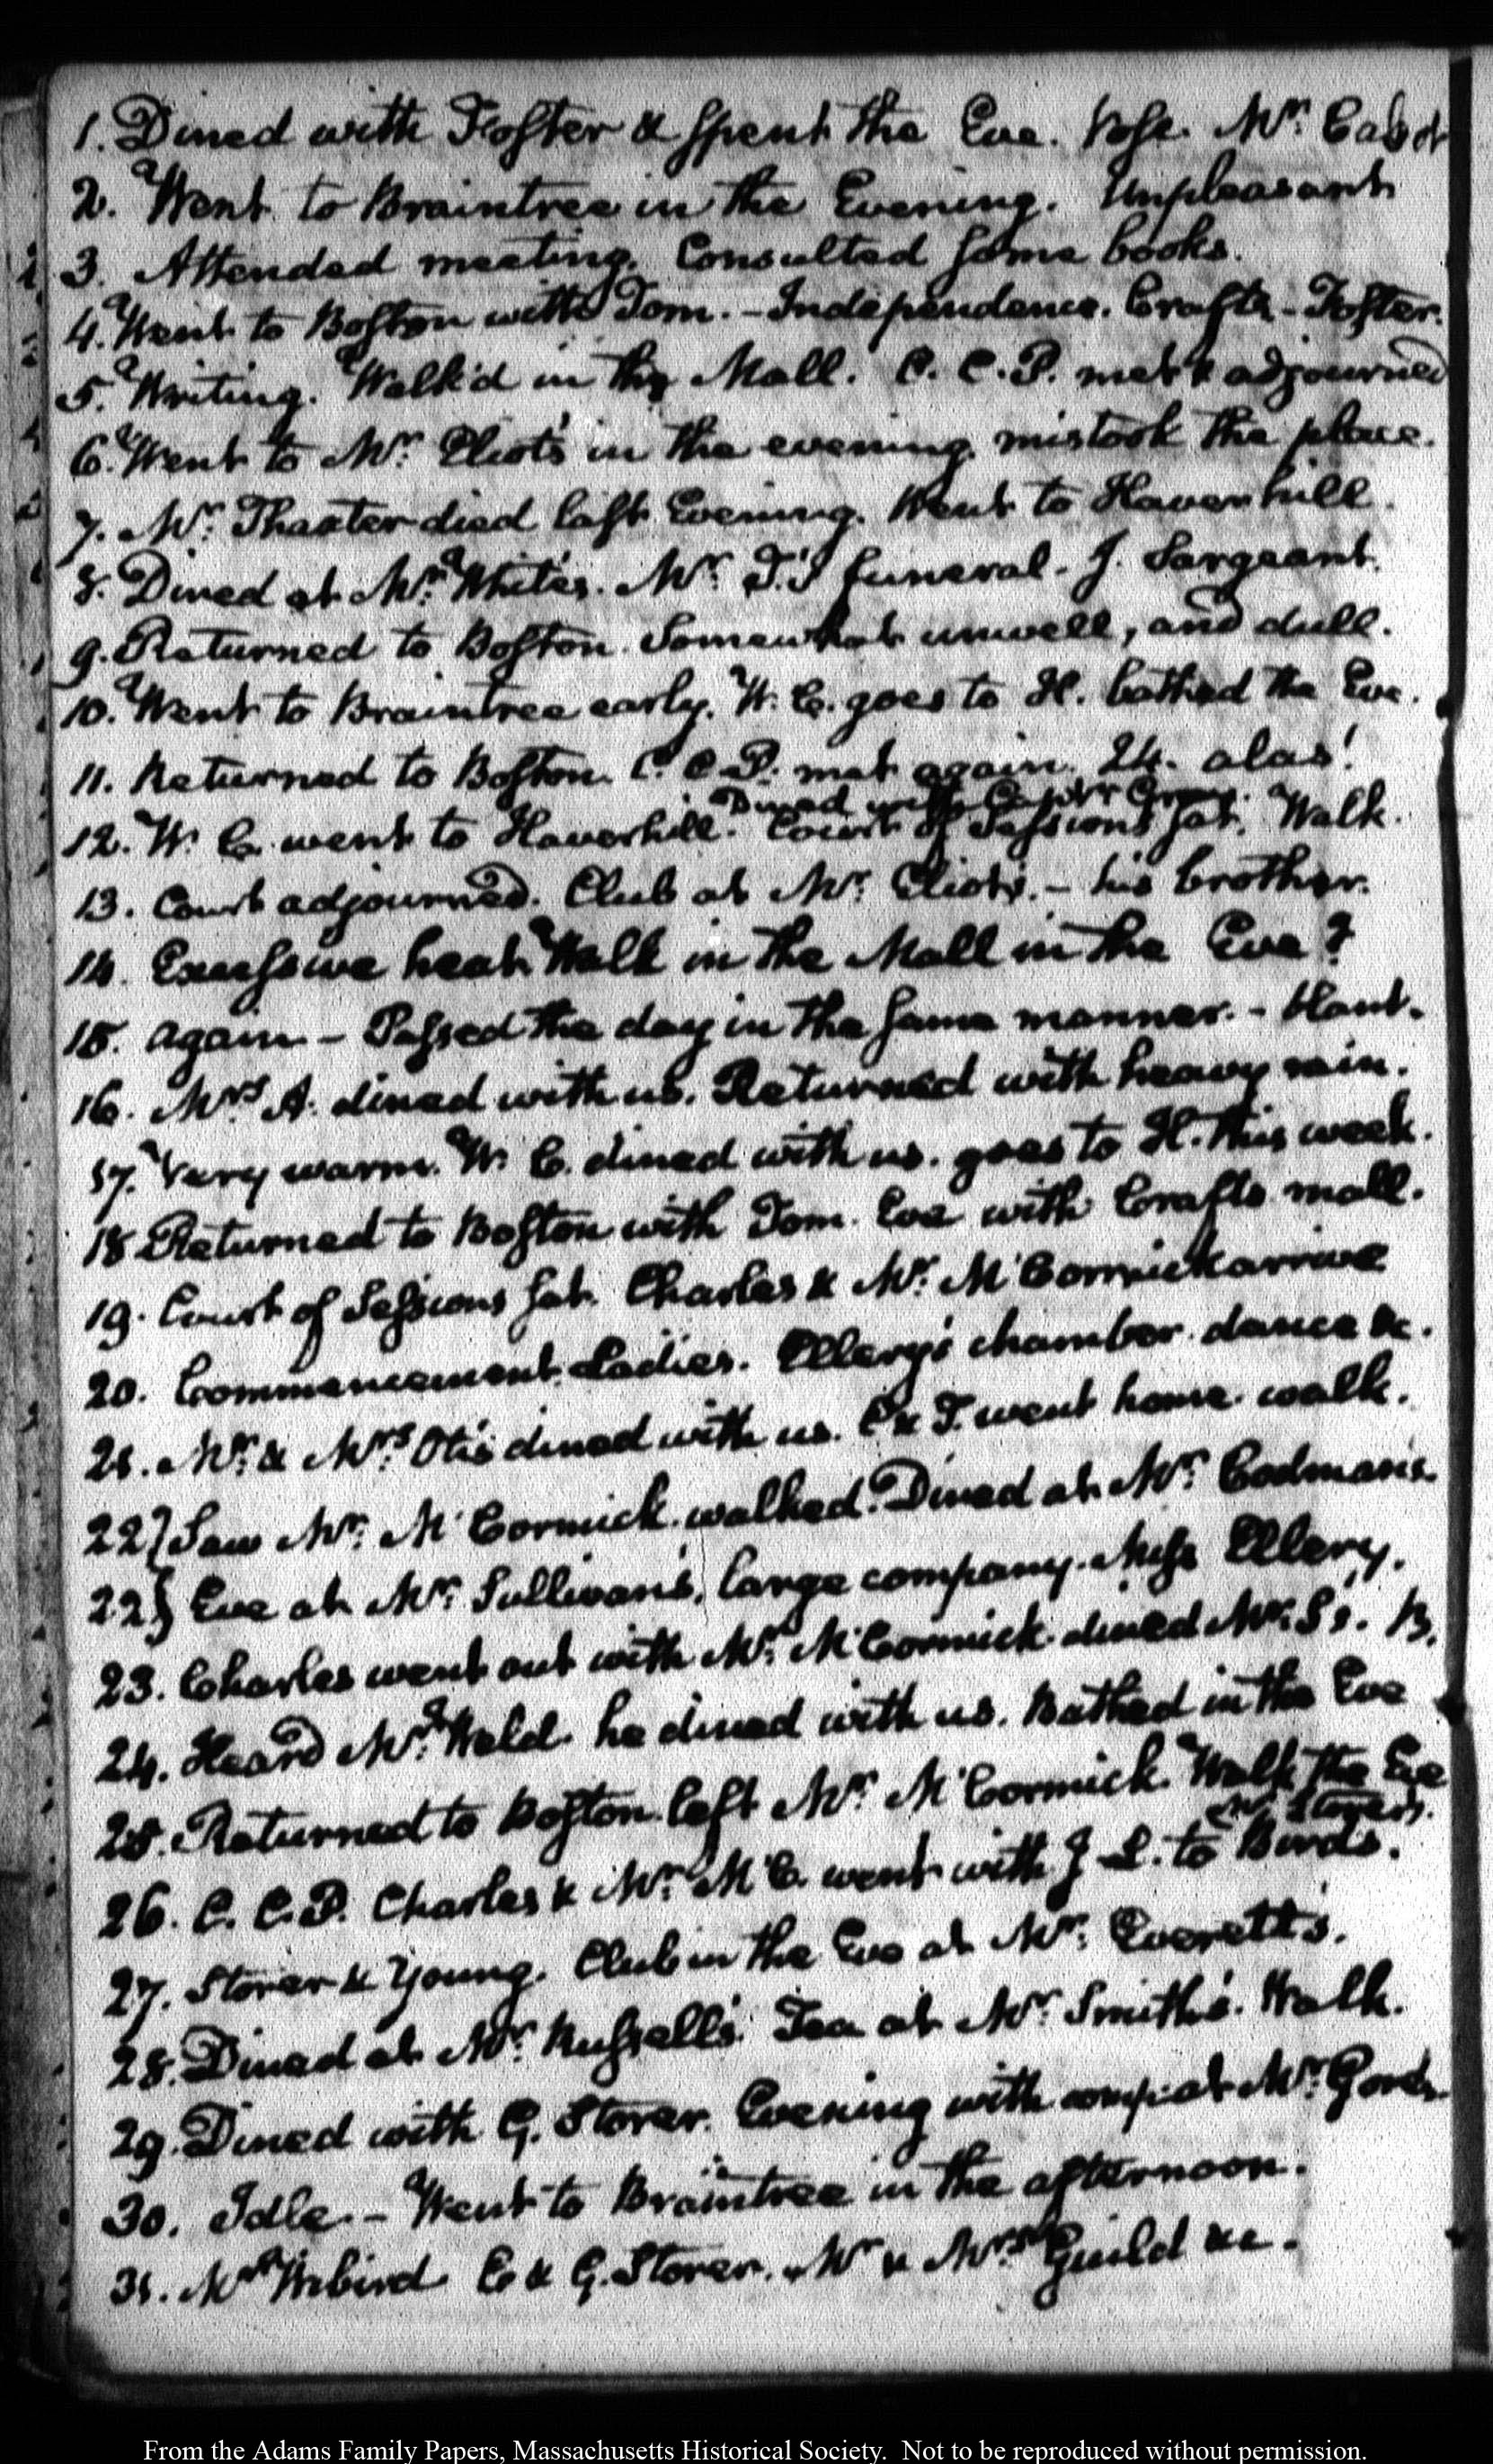 1. Dined with Foster & spent the Eve. Vose. Mr. Cabot
2. Went to Braintree in the Evening. Unpleasant
3. Attended meeting. Consulted some books.
4. Went to Boston with Tom. - Independence. Crafts - Foster.
5. Writing. Walk'd in the Mall. C. C. P. met & adjourned
6. Went to Mr. Eliot's in the evening. mistook the place.
7. Mr. Thaxter died last Evening. Went to Haverhill.
8. Dined at Mr. White's. Mr. T.'s funeral. J. Sargeant.
9. Returned to Boston. Somewhat unwell, and dull.
10. Went to Braintree early. W. C. goes to H. bathed the Eve.
11. Returned to Boston. C. C. P. met again. 24. alas!
Dined with
12. W. C. went to Haverhill. Court of Sessions sat. Walk.
13. Court adjourned. Club at Mr. Eliot's. - his brother.
14. Excessive heat. Walk in the Mall in the Eve?
15. again - Passed the day in the same manner. - Haut.
16. Mrs. A. dined with us. Returned with heavy rain.
17. Very warm. W. C. dined with us. goes to H. this week.
18 Returned to Boston with Tom. Eve with Crafts. mall.
19. Court of Sessions sat. Charles & Mr. McCormick arrive
20. Commencement. Ladies. Ellery's chamber. dance &c.
21. Mr. & Mrs. Otis dined with us. C & T. went home. walk.
22} Saw Mr. McCormick. walked. Dined at Mr. Codman's.
22} Eve at Mr. Sullivan's, large company. Miss Ellery.
23. Charles went out with Mr. McCormick. dined Mr. S's. B.
24. Heard Mr. Weld. he dined with us. Bathed in the Eve
25. Returned to Boston. left Mr. McCormick. Walk the Eve
Storers.
26. C. C. P. Charles & Mr. McC. went with J L. to Birds.
27. Storer & Young. Club in the Eve at Mr. Everett's.
28. Dined at Mr. Russell's. Tea at Mr. Smith's. Walk.
29. Dined with G. Storer. Evening with comp. at Mr.
30. Idle. - Went to Braintree in the afternoon.
31. Mr. Wibird. E & G. Storer. Mr & Mrs. Guild &c.
From the Adams Family Papers, Massachusetts Historical Society. Not to be reproduced without permission.